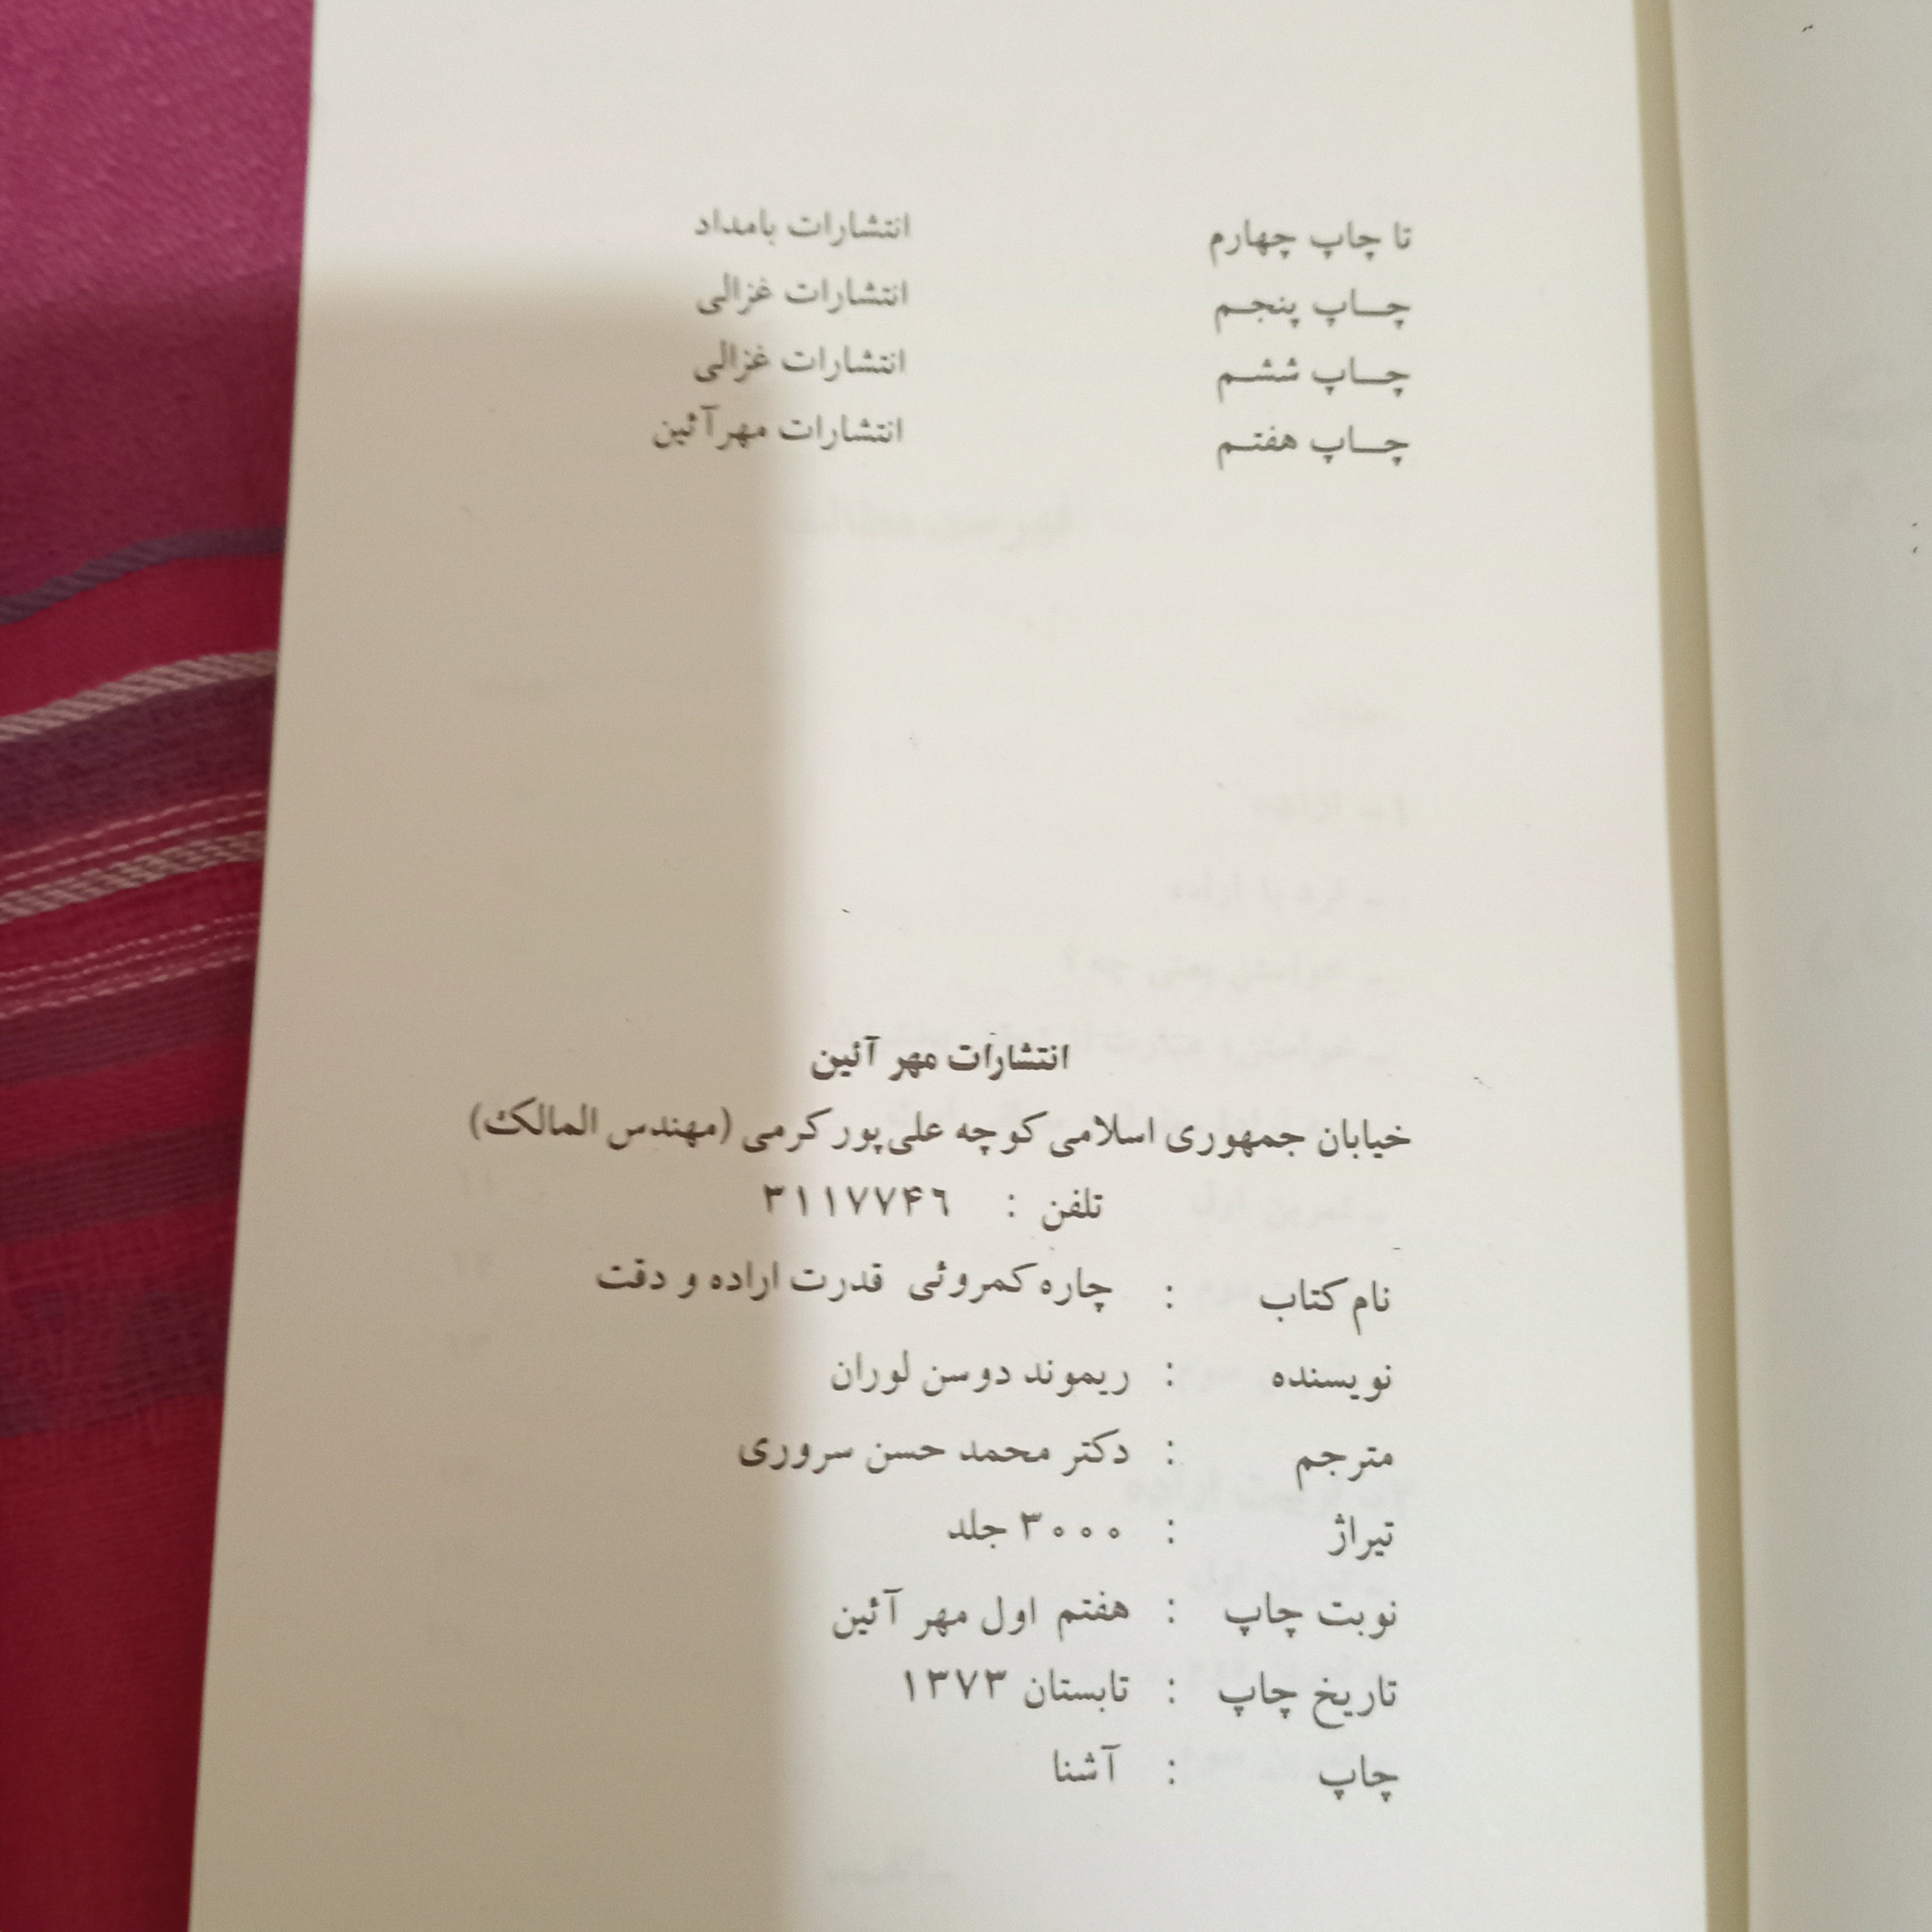 تا چاپ چهارم انتشارات بامداد
چــاپ پنجـم انتشارات غزالی
چــاپ ششـم انتشارات غزالی
چــاپ هفتـم انتشارات مهرآئین
انتشارات مهر آئین
خیابان جمهوری اسلامی کوچه علی‌پور کرمی (مهندس الممالک)
تلفن : ۳۱۱۷۷۴۶
نام کتاب : چاره کمروئی قدرت اراده و دقت
نویسنده : ریموند دوسن لوران
مترجم : دکتر محمد حسن سروری
تیراژ : ۳۰۰۰ جلد
نوبت چاپ : هفتم اول مهر آئین
تاریخ چاپ : تابستان ۱۳۷۳
چاپ : آشنا